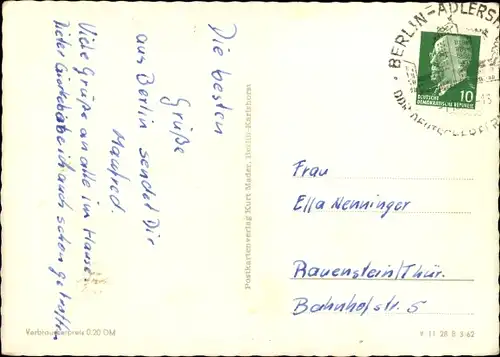 Die besten
Grüße
aus Berlin sendet Dir
Manfred.
Viele Grüße an alle im Hause.
habe ich auch schon getroffen
Postkartenverlag Kurt Mader, Berlin-Karlshorst
BERLIN-ADLERSH
10
DEUTSCHE
DEMOKRATISCHE REPUBLIK
Frau
Ella Nenninger
Rauenstein/Thür.
Bahnhofstr. 5
Verbraucherpreis 0,20 DM
V 11 28 B 3/62